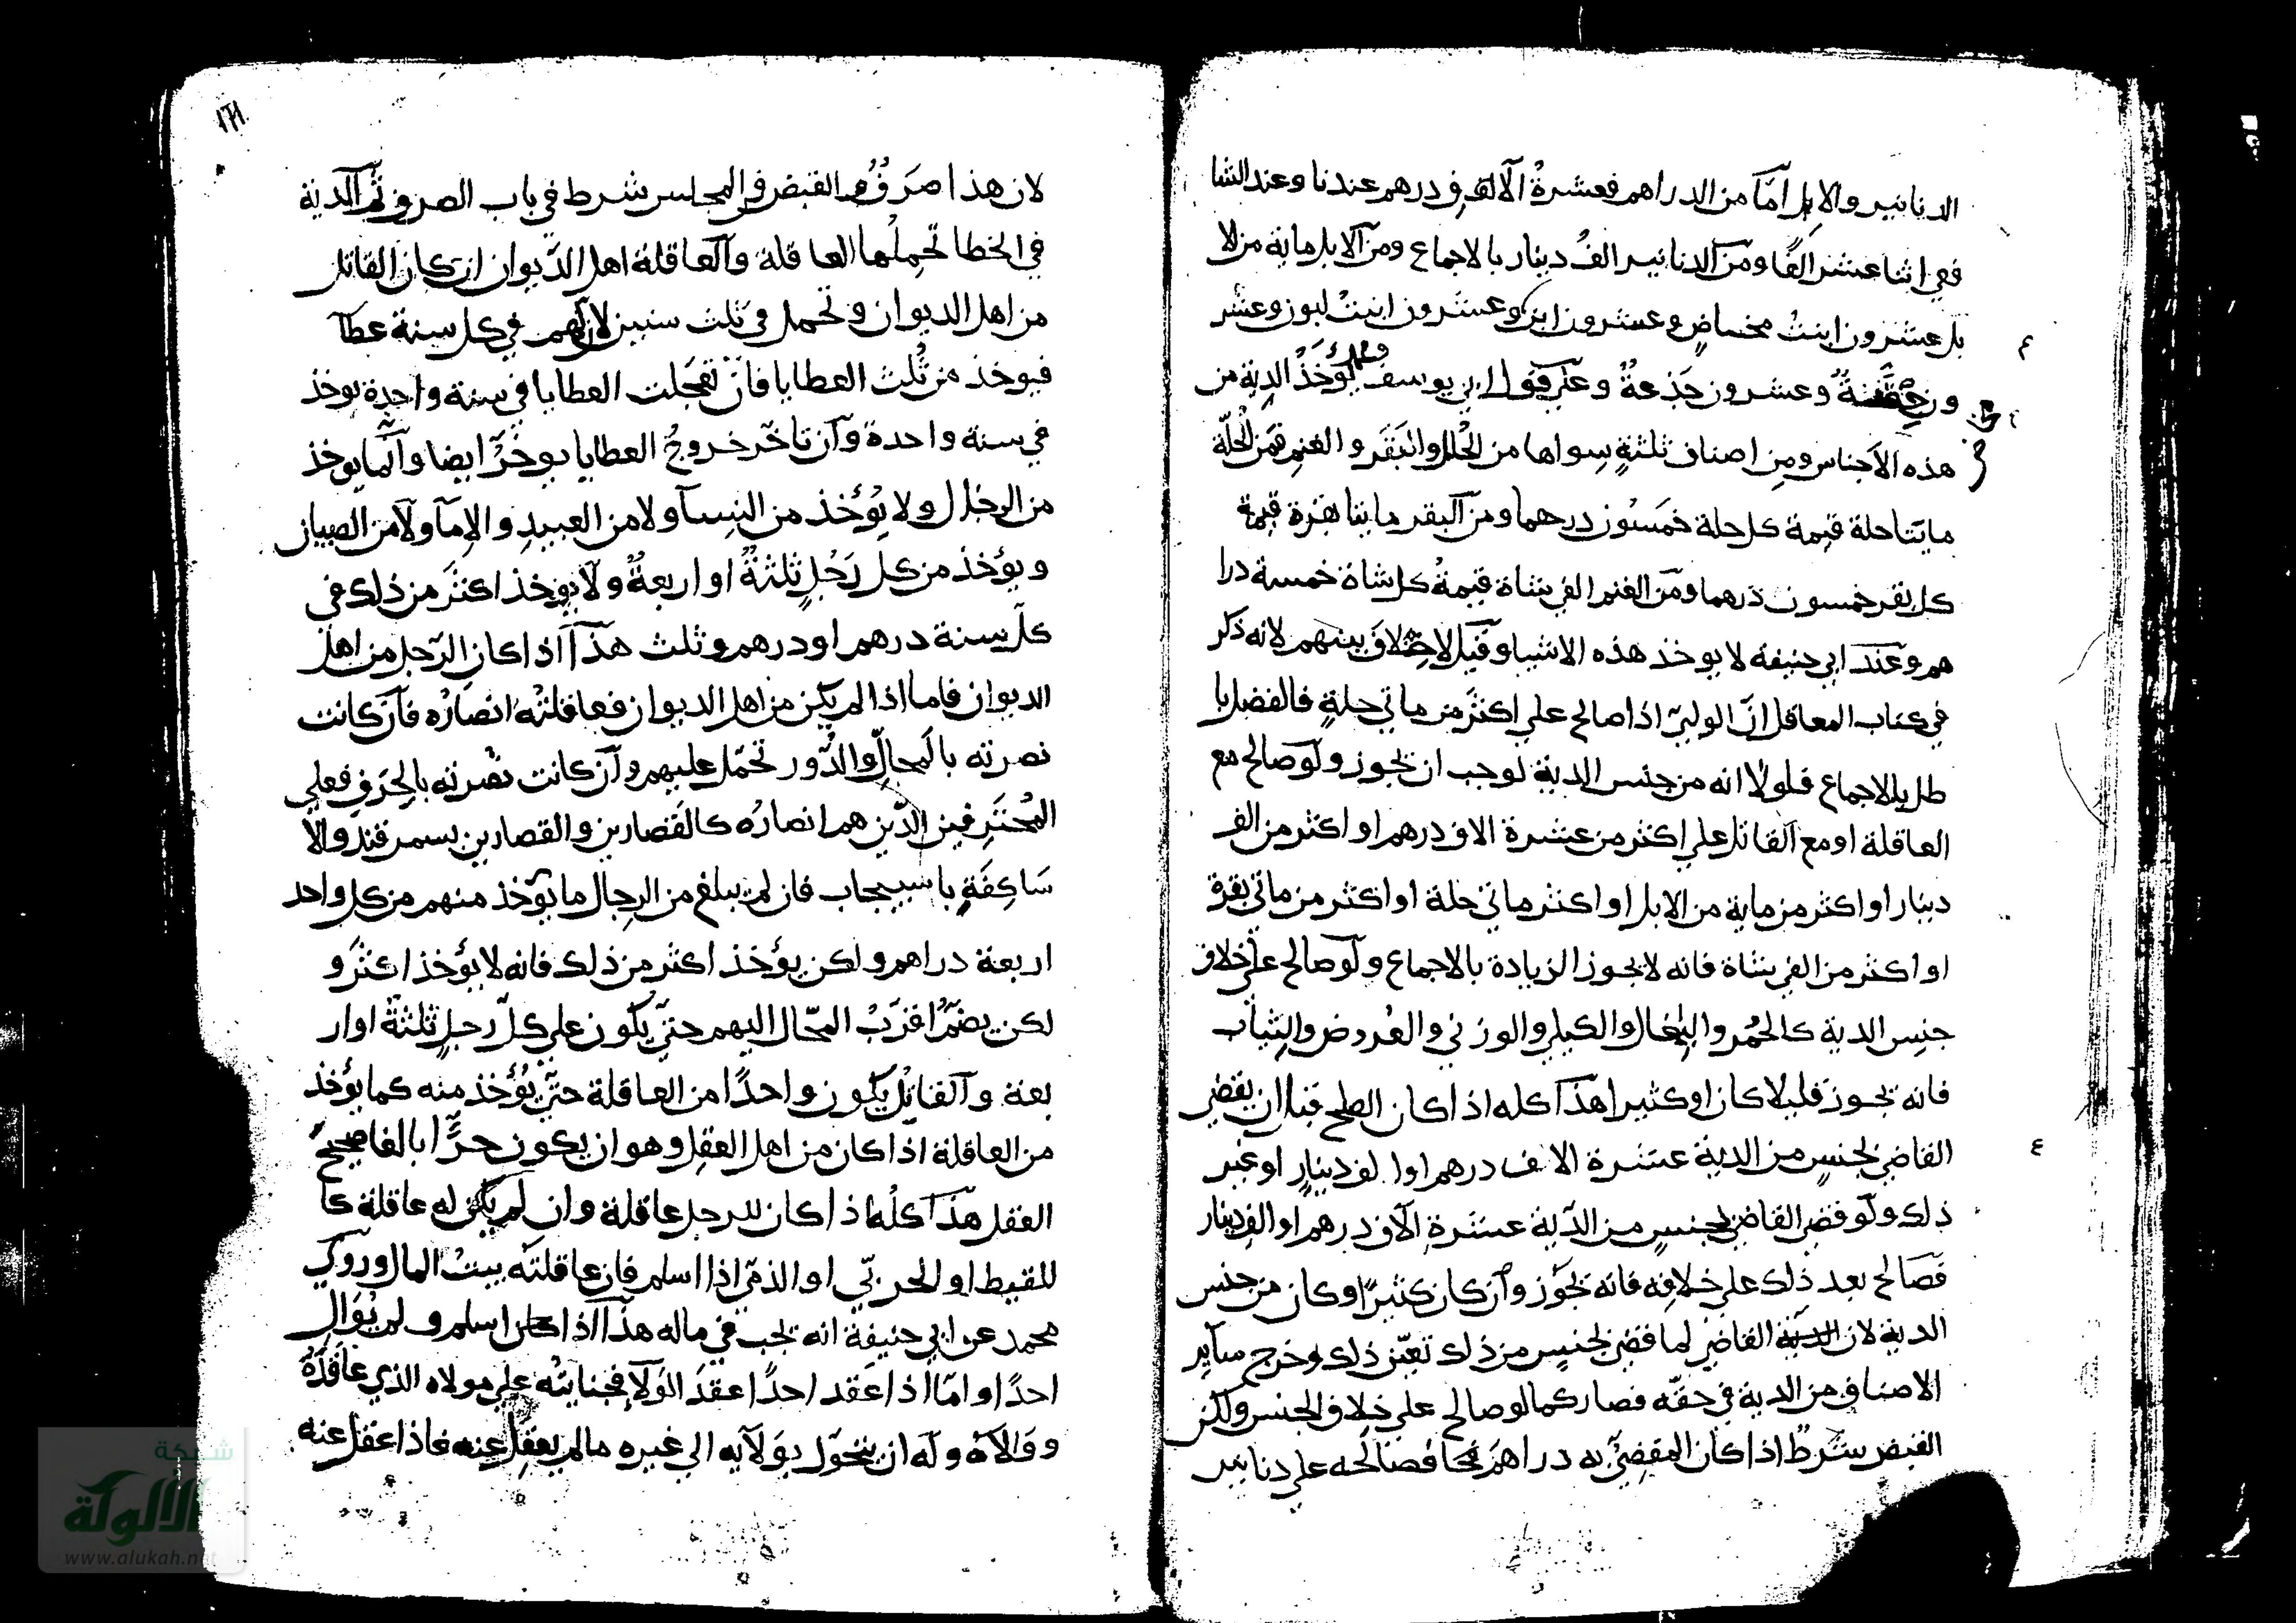 الدنانير والابل امّا من الدراهم فعشرةُ آلاف درهم عندنا وعند الشا
فعي اثنا عشر الفًا ومن الدنانير الفُ دينار بالاجماع ومن الابل ماية من الا
بل عشرون ابنتُ مخاضٍ وعشرون ابن وعشرون ابنتُ لبون وعشر
ون حقة وعشرون جَذعةً وعلى قول ابي يوسف ومحمد يُؤخَذُ الدية من
هذه الاجناس ومِن اصناف ثلثةٍ سواها من الحُلل والبَقَر والغنم فمن الحُلّة
مايتا حلة قيمة كل حلة خمَسُون درهما ومن البقر مايتا بقرة قيمة
كل بقر خمسون درهما ومن الغنم الفي شاة قيمةُ كل شاة خمسة درا
هم وعند ابي حنيفة لا يوخذ هذه الاشيا وقيل لا خلاف بينهم لانه ذكر
في كتاب المعاقل انّ الولىّ اذا صالح على اكثَر من ماتي حلةٍ فالفضل با
طل بالاجماع فلولا انه من جنس الدية لوجب ان يجوز ولو صالح مع
العاقلة او مع القاتل على اكثر من عشرة الاف درهم او اكثر من الف
دينار او اكثر من ماية من الابل او اكثر ماتي حلة او اكثر من ماتي بقرة
او اكثر من الفي شاة فانه لا يجوز الزيادة بالاجماع ولو صالح على خلاف
جنِس الدية كالحُمُر والبغال والكيلي والوزني والعُروض والثياب
فانه يجوز قليلا كان او كثيرا هذا كله اذا كان الصلح قبل ان يقضي
القاضي بجنسٍ من الدية عشرة الاف درهم او الف دينارٍ او غير
ذلك ولو قضى القاضي بجنسٍ من الدية عشَرةِ آلاف درهم او الف دينار
فصالح بعد ذلك على خلافِه فانه يجوز وان كان كثيرًا وكان من جنس
الدية لان القاضي لما قضى بجنسٍ من ذلك تعيّن ذلك وخرج ساير
الاصناف من الدية في حقّه فصار كما لو صالح على خلاف الجنس ولكن
القبض شرطٌ اذا كان المقضيُّ به دراهمَ فصالحه على دنانير
١٦١
لان هذا صَرَفٌ والقبض في المجلس شرط في باب الصرف ثم الدية
في الخطا تحمِلُها العاقلة والعاقلة اهل الدّيوان ان كان القاتل
من اهل الديوان وتحمل في ثلث سنين لان لهم في كل سنة عطآ
فيوخذ من ثُلث العطايا فان تعجّلت العطايا في سنة واحدة يوخذ
في سنة واحدة وان تاخّر خروجُ العطايا يوخَّر ايضا وانّما يوخذ
من الرجال ولا يُؤخذ من النِسآ ولا من العبيدِ والاِمآ ولا من الصبيان
ويؤخذ من كل رَجُلٍ ثلثةٌ او اربعةٌ ولا يؤخذ اكثَر من ذلك في
كلّ سنة درهم او درهم وثلث هذا اذا كان الرّجل من اهل
الديوان فاما اذا لم يكن من اهل الديوان فعاقلتُه انصَارُه فان كانت
نصرته بالمحالّ والدُّور تحمّل عليهم وان كانت نُصرته بالحِرَف فعلى
المُحتَرِفين الذين هم انصارُه كالقَصّارين والقصارين بسمرقند والا
سَاكِفَةِ باسبيجاب فان لم يبلغ من الرجال ما يؤخذ منهم من كل واحد
اربعة دراهم ولكن يؤخذ اكثر من ذلك فانه لا يؤخذ اكثر و
لكن يضمّ اقرَبُ المحّال اليهم حتى يكون على كلّ رجلٍ ثلثة او ار
بعة والقاتل يكون واحدًا من العاقلة حتى يُؤخذ منه كما يؤخذ
من العاقلة اذا كان من اهل العقل وهو ان يكون حرًّا بالغا صحيحَ
العقل هذا كلُه اذا كان للرجل عاقلة وان لم يكن له عاقلة كا
للقيط او الحربّي او الذمّي اذا اسلم فان عاقلتَه بيتُ المال وروى
محمد عن ابي حنيفة انه يجب في ماله هذا اذا كان اسلم ولم يُوَالِ
احدًا وامّا اذا عقد احدًا عقدَ الوَلآ فجنايتُه على مولاه الذي عاقَدَهُ
ووَالآهُ وله ان يتحوّل بوَلآيه الى غيره ما لم يعقِل عنه فاذا عقل عنه
شبكة
الألوكة
www.alukah.net